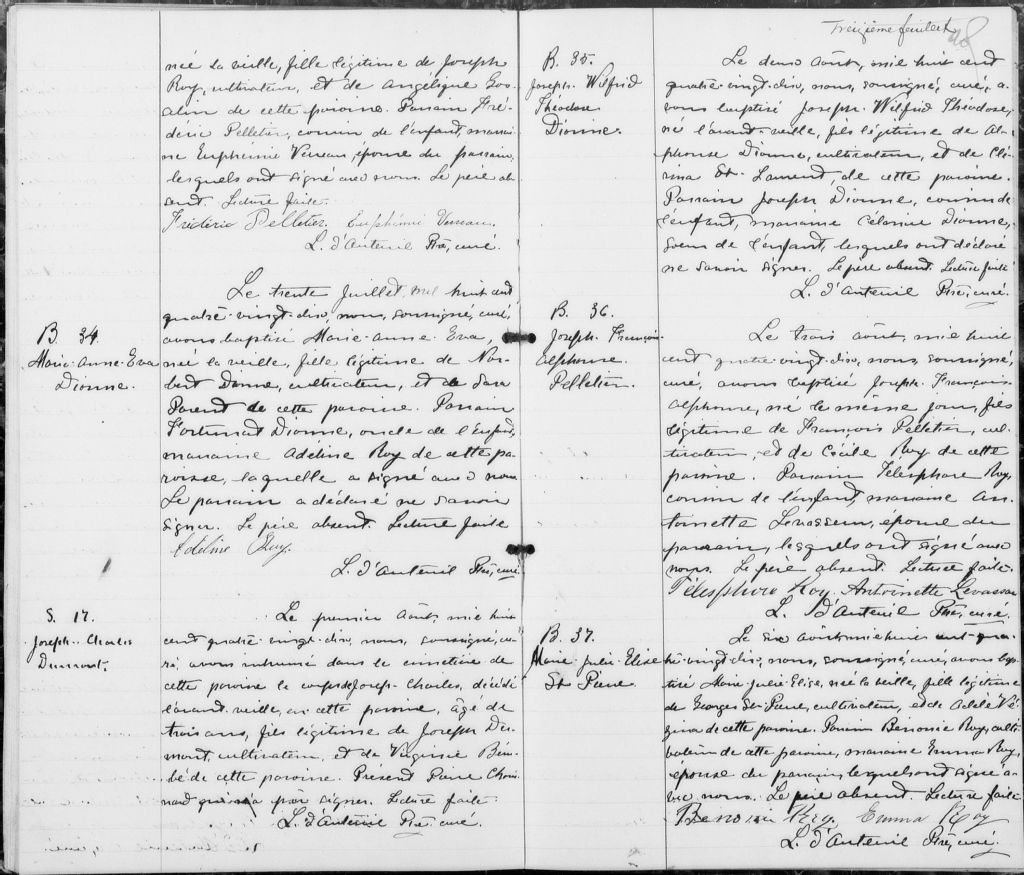 née la veille, fille légitime de Joseph
Roy, cultivateur, et de Angélique Gos-
selin de cette paroisse. Parrain Fré-
déric Pelletier, cousin de l'enfant, marrai-
ne Euphémie Verreau, épouse du parrain,
lesquels ont signé avec nous. Le père ab-
sent. Lecture faite.
Frédéric Pelletier. Euphémie Verreau
L. d'Auteuil Ptre, curé.
B. 34.
Marie-Anne-Eva
Dionne.
Le trente Juillet, mil huit cent
quatre-vingt-dix, nous, soussigné, curé,
avons baptisé Marie-Anne-Eva,
née la veille, fille légitime de Nor-
bert Dionne, cultivateur, et de Sara
Parent de cette paroisse. Parrain
Fortunat Dionne, oncle de l'Enfant,
marraine Adéline Roy de cette pa-
roisse, laquelle a signé avec nous
Le parrain a déclaré ne savoir
signer. Le père absent. Lecture faite
Adéline Roy.
L. d'Auteuil Ptre, curé
S. 17.
Joseph-Charles
Dumont.
Le premier Août, mil huit
cent quatre-vingt-dix, nous, soussigné, cu-
ré, avons inhumé dans le cimetière de
cette paroisse le corps de Joseph-Charles, décédé
l'avant-veille, en cette paroisse, âgé de
trois ans, fils légitime de Joseph Du-
mont, cultivateur, et de Virginie Béru-
bé de cette paroisse. Présent Pierre Choui-
nard qui n'a pu signer. Lecture faite.
L. d'Auteuil Ptre, curé.
Treizième feuillet
48
B. 35.
Joseph-Wilfrid
Théodose
Dionne.
Le deux Août, mil huit cent
quatre-vingt-dix, nous, soussigné, curé, a-
vons baptisé Joseph-Wilfrid Théodose,
né l'avant-veille, fils légitime de Al-
phonse Dionne, cultivateur, et de Clé-
rina St-Laurent, de cette paroisse.
Parrain Joseph Dionne, cousin de
l'enfant, marraine Célanire Dionne,
soeur de l'enfant, lesquels ont déclaré
ne savoir signer. Le père absent. Lecture faite
L. d'Auteuil Ptre, curé.
B. 36.
Joseph-François
Alphonse
Pelletier.
Le trois Août, mil huit
cent quatre-vingt-dix, nous, soussigné,
curé, avons baptisé Joseph-François
Alphonse, né le même jour, fils
légitime de François Pelletier, cul-
tivateur, et de Cécile Roy de cette
paroisse. Parrain Télesphore Roy,
cousin de l'enfant, marraine An-
toinette Levasseur, épouse du
parrain, lesquels ont signé avec
nous. Le père absent. Lecture faite.
Télesphore Roy. Antoinette Levasseur
L. D'Auteuil Ptre, curé.
B. 37.
Marie-Julie-Elise
St Pierre
Le six Août mil huit cent-qua-
tre-vingt-dix, nous, soussigné, curé, avons bap-
tisé Marie Julie-Elise, née la veille, fille légitime
de Georges St-Pierre, cultivateur, et de Adèle Vé-
zina de cette paroisse. Parrain Benonie Roy, culti-
vateur de cette paroisse, marraine Emma Roy,
épouse du parrain, lesquels ont signé a-
vec nous. Le père absent. Lecture faite
Benonie Roy. Emma Roy
L. d'Auteuil Ptre, curé.